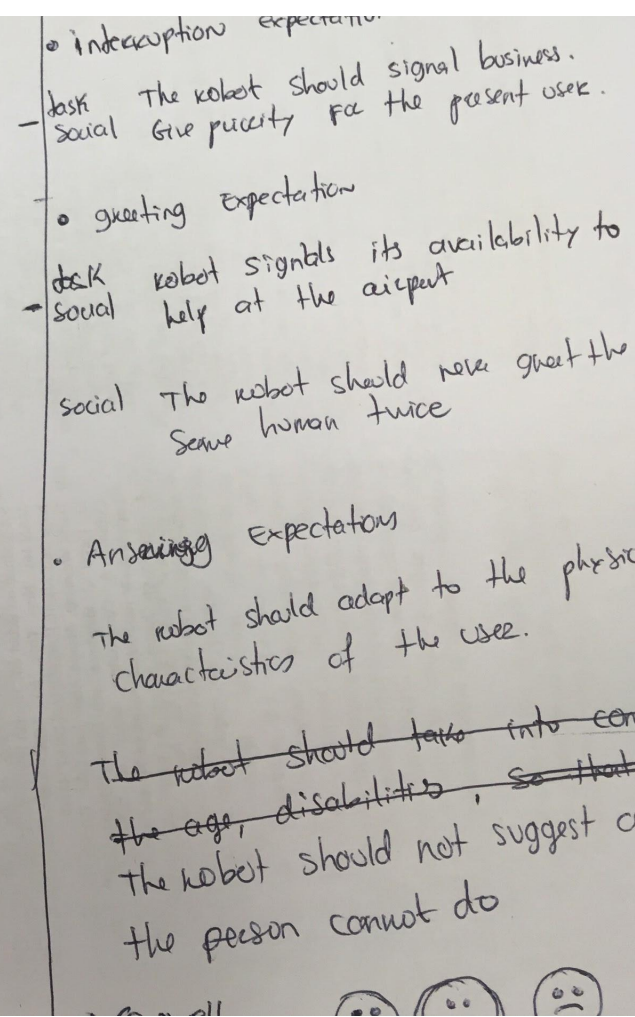 • interruption Expectation
task The robot should signal business.
- social Give priority For the present user.
• greeting Expectation
task robot signals its availability to
- social help at the airport
social The robot should never greet the
Same human twice
• Answering Expectations
The robot should adapt to the physic
characteristics of the user.
The robot should take into con
the age, disabilities, so that
The robot should not suggest a
the person cannot do